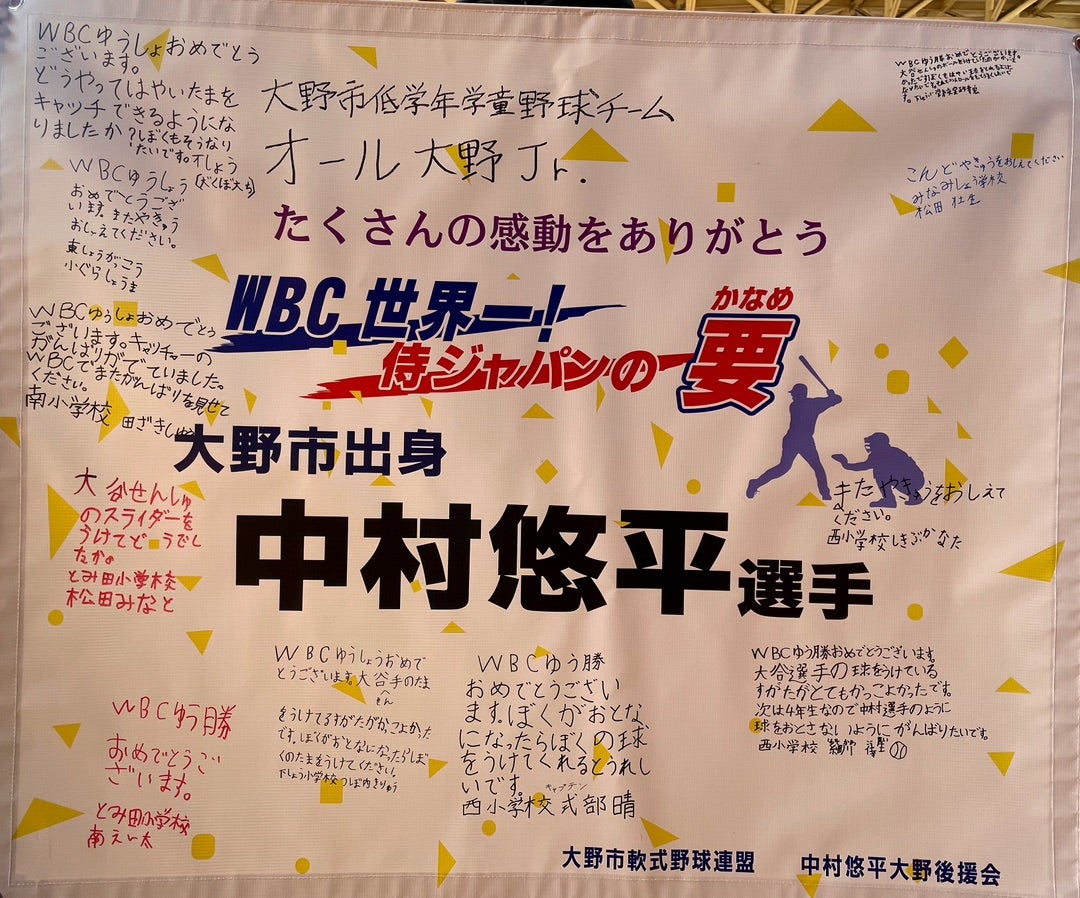 WBCゆうしょおめでとう
ございます。
どうやってはやいたまを
キャッチできるようにな
りましたか?しぼくもそうなり
たいです。下しょう
(だくぼ大ち)
大野市低学年学童野球チーム
オール大野Jr.
WBCゆう勝おめでとうございます。
こんどやきゅうをおしえてください
みなみしょう学校
松田
WBCゆうしょう
おめでとうござ
います。またやきゅう
おしえてください。
東しょうがっこう
小ぐらしょうま
たくさんの感動をありがとう
WBC世界一!
かなめ
侍ジャパンの要
WBCゆうしょおめでとう
ございます。キャッチャーの
がんばりがでていました。
WBCでまたがんばりを見せて
ください。
南小学校 田ざきしゅん
大野市出身
中村悠平選手
また やきゅうをおしえて
ください。
西小学校しきぶかなた
大谷せんしゅ
のスライダーを
うけてどうでし
たか。
とみ田小学校
松田みなと
WBCゆう勝
おめでとうご
ざいます。
とみ田小学校
南えい太
WBCゆうしょうおめで
とうございます。大谷せん手のたま
をうけてるすがたがかこよかった
です。ぼくがおとなになったらぼ
くのたまをうけてください。
下しょう小学校つぼ内きりゅう
WBCゆう勝
おめでとうござい
ます。ぼくがおとな
になったらぼくの球
をうけてくれるとうれし
いです。
キャプテン
西小学校式部晴
WBCゆう勝おめでとうございます。
大谷選手の球をうけている
すがたがとてもかっこよかったです。
次は4年生なので中村選手のように
球をおとさないようにがんばりたいです。
西小学校
大野市軟式野球連盟 中村悠平大野後援会